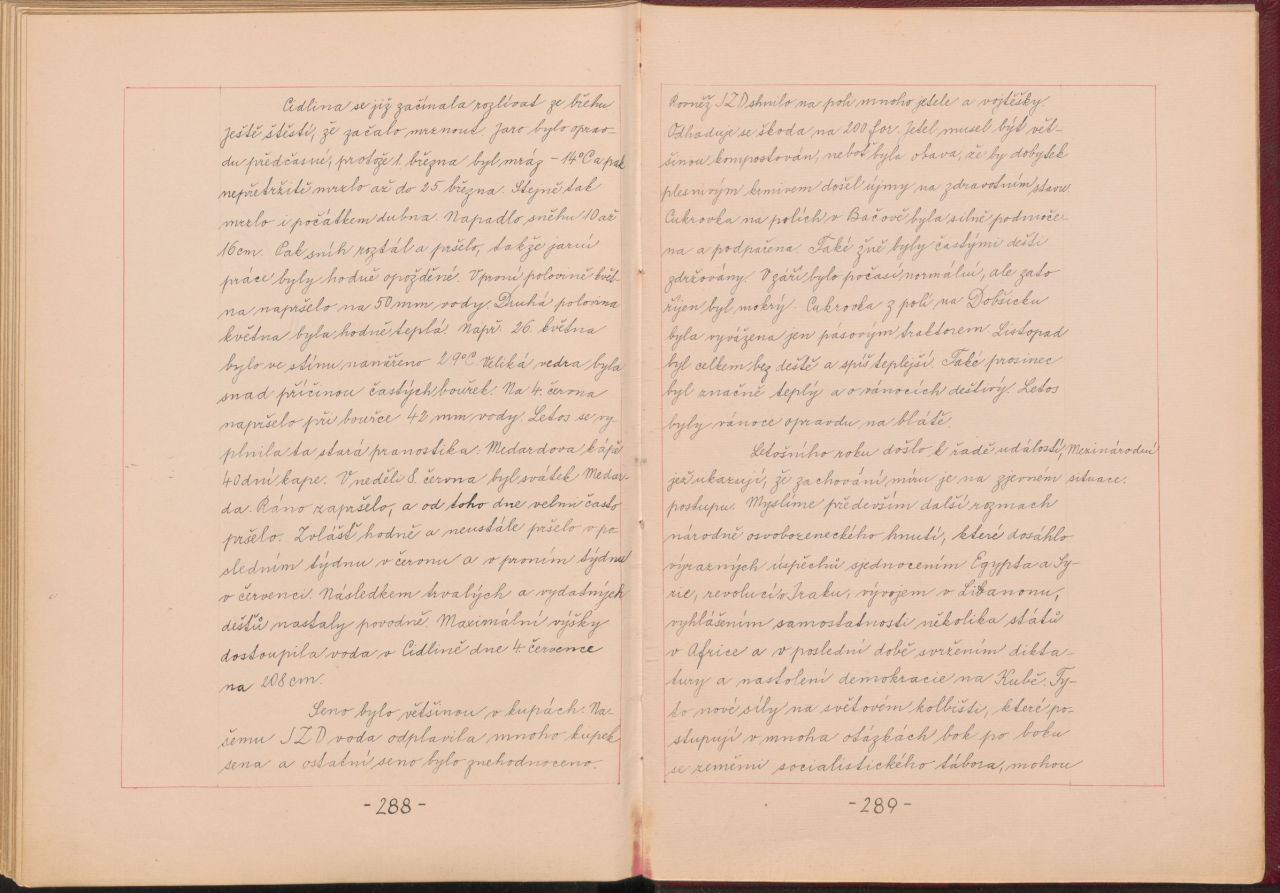 Cidlina se již začínala rozlívat ze břehu
Ještě štěstí, že začalo mrznout. Jaro bylo oprav-
du předčasné, protože 1. března byl mráz - 14°C a pak
nepřetržitě mrzlo až do 25. března. Stejně tak
mrzlo i počátkem dubna. Napadlo sněhu 10 až
16 cm. Pak sníh roztál a pršelo, takže jarní
práce byly hodně opožděné. V první polovině květ-
na napršelo na 50 mm vody. Druhá polovina
května byla hodně teplá. Např. 26. května
bylo ve stínu naměřeno 29°C. Veliká vedra byla
snad příčinou častých bouřek. Na 4. června
napršelo při bouřce 42 mm vody. Letos se vy-
plnila ta stará pranostika: Medardova kápě
40 dní kape. V neděli 8. června byl svátek Medar-
da. Ráno zapršelo, a od toho dne velmi často
pršelo. Zvlášť hodně a neustále pršelo v po-
sledním týdnu v červnu a v prvním týdnu
v červenci. Následkem trvalých a vydatných
dešťů nastaly povodně. Maximální výšky
dostoupila voda v Cidlině dne 4. července
na 208 cm.
Seno bylo většinou v kupách. Na-
šemu JZD voda odplavila mnoho kupek
sena a ostatní seno bylo znehodnoceno.
- 288 -
Rovněž JZD shnilo na poli mnoho jetele a vojtěšky.
Odhaduje se škoda na 200 for. Jetel musel být vět-
šinou kompostován, neboť byla obava, že by dobytek
plesnivým krmivem došel újmy na zdravotním stavu
Cukrovka na polích v Báčově byla silně podmoče-
na a podpařena. Také žně byly častými dešti
zdržovány. V září bylo počasí normální, ale zato
říjen byl mokrý. Cukrovka z polí na Dobšicku
byla vyvážena jen pásovým traktorem. Listopad
byl celkem bez deště a spíš teplejší. Také prosinec
byl značně teplý a o vánocích deštivý. Letos
byly vánoce opravdu na blátě.
Letošního roku došlo k řadě událostí, Mezinárodní
jež ukazují, že zachování míru je na zjevném situace.
postupu. Myslíme především další rozmach
národně osvobozeneckého hnutí, které dosáhlo
výrazných úspěchů sjednocením Egypta a Sy-
rie, revolucí v Iraku, vývojem v Libanonu,
vyhlášením samostatnosti několika států
v Africe a v poslední době svržením dikta-
tury a nastolení demokracie na Kubě. Ty-
to nové síly na světovém kolbišti, které po-
stupují v mnoha otázkách bok po boku
se zeměmi socialistického tábora, mohou
- 289 -